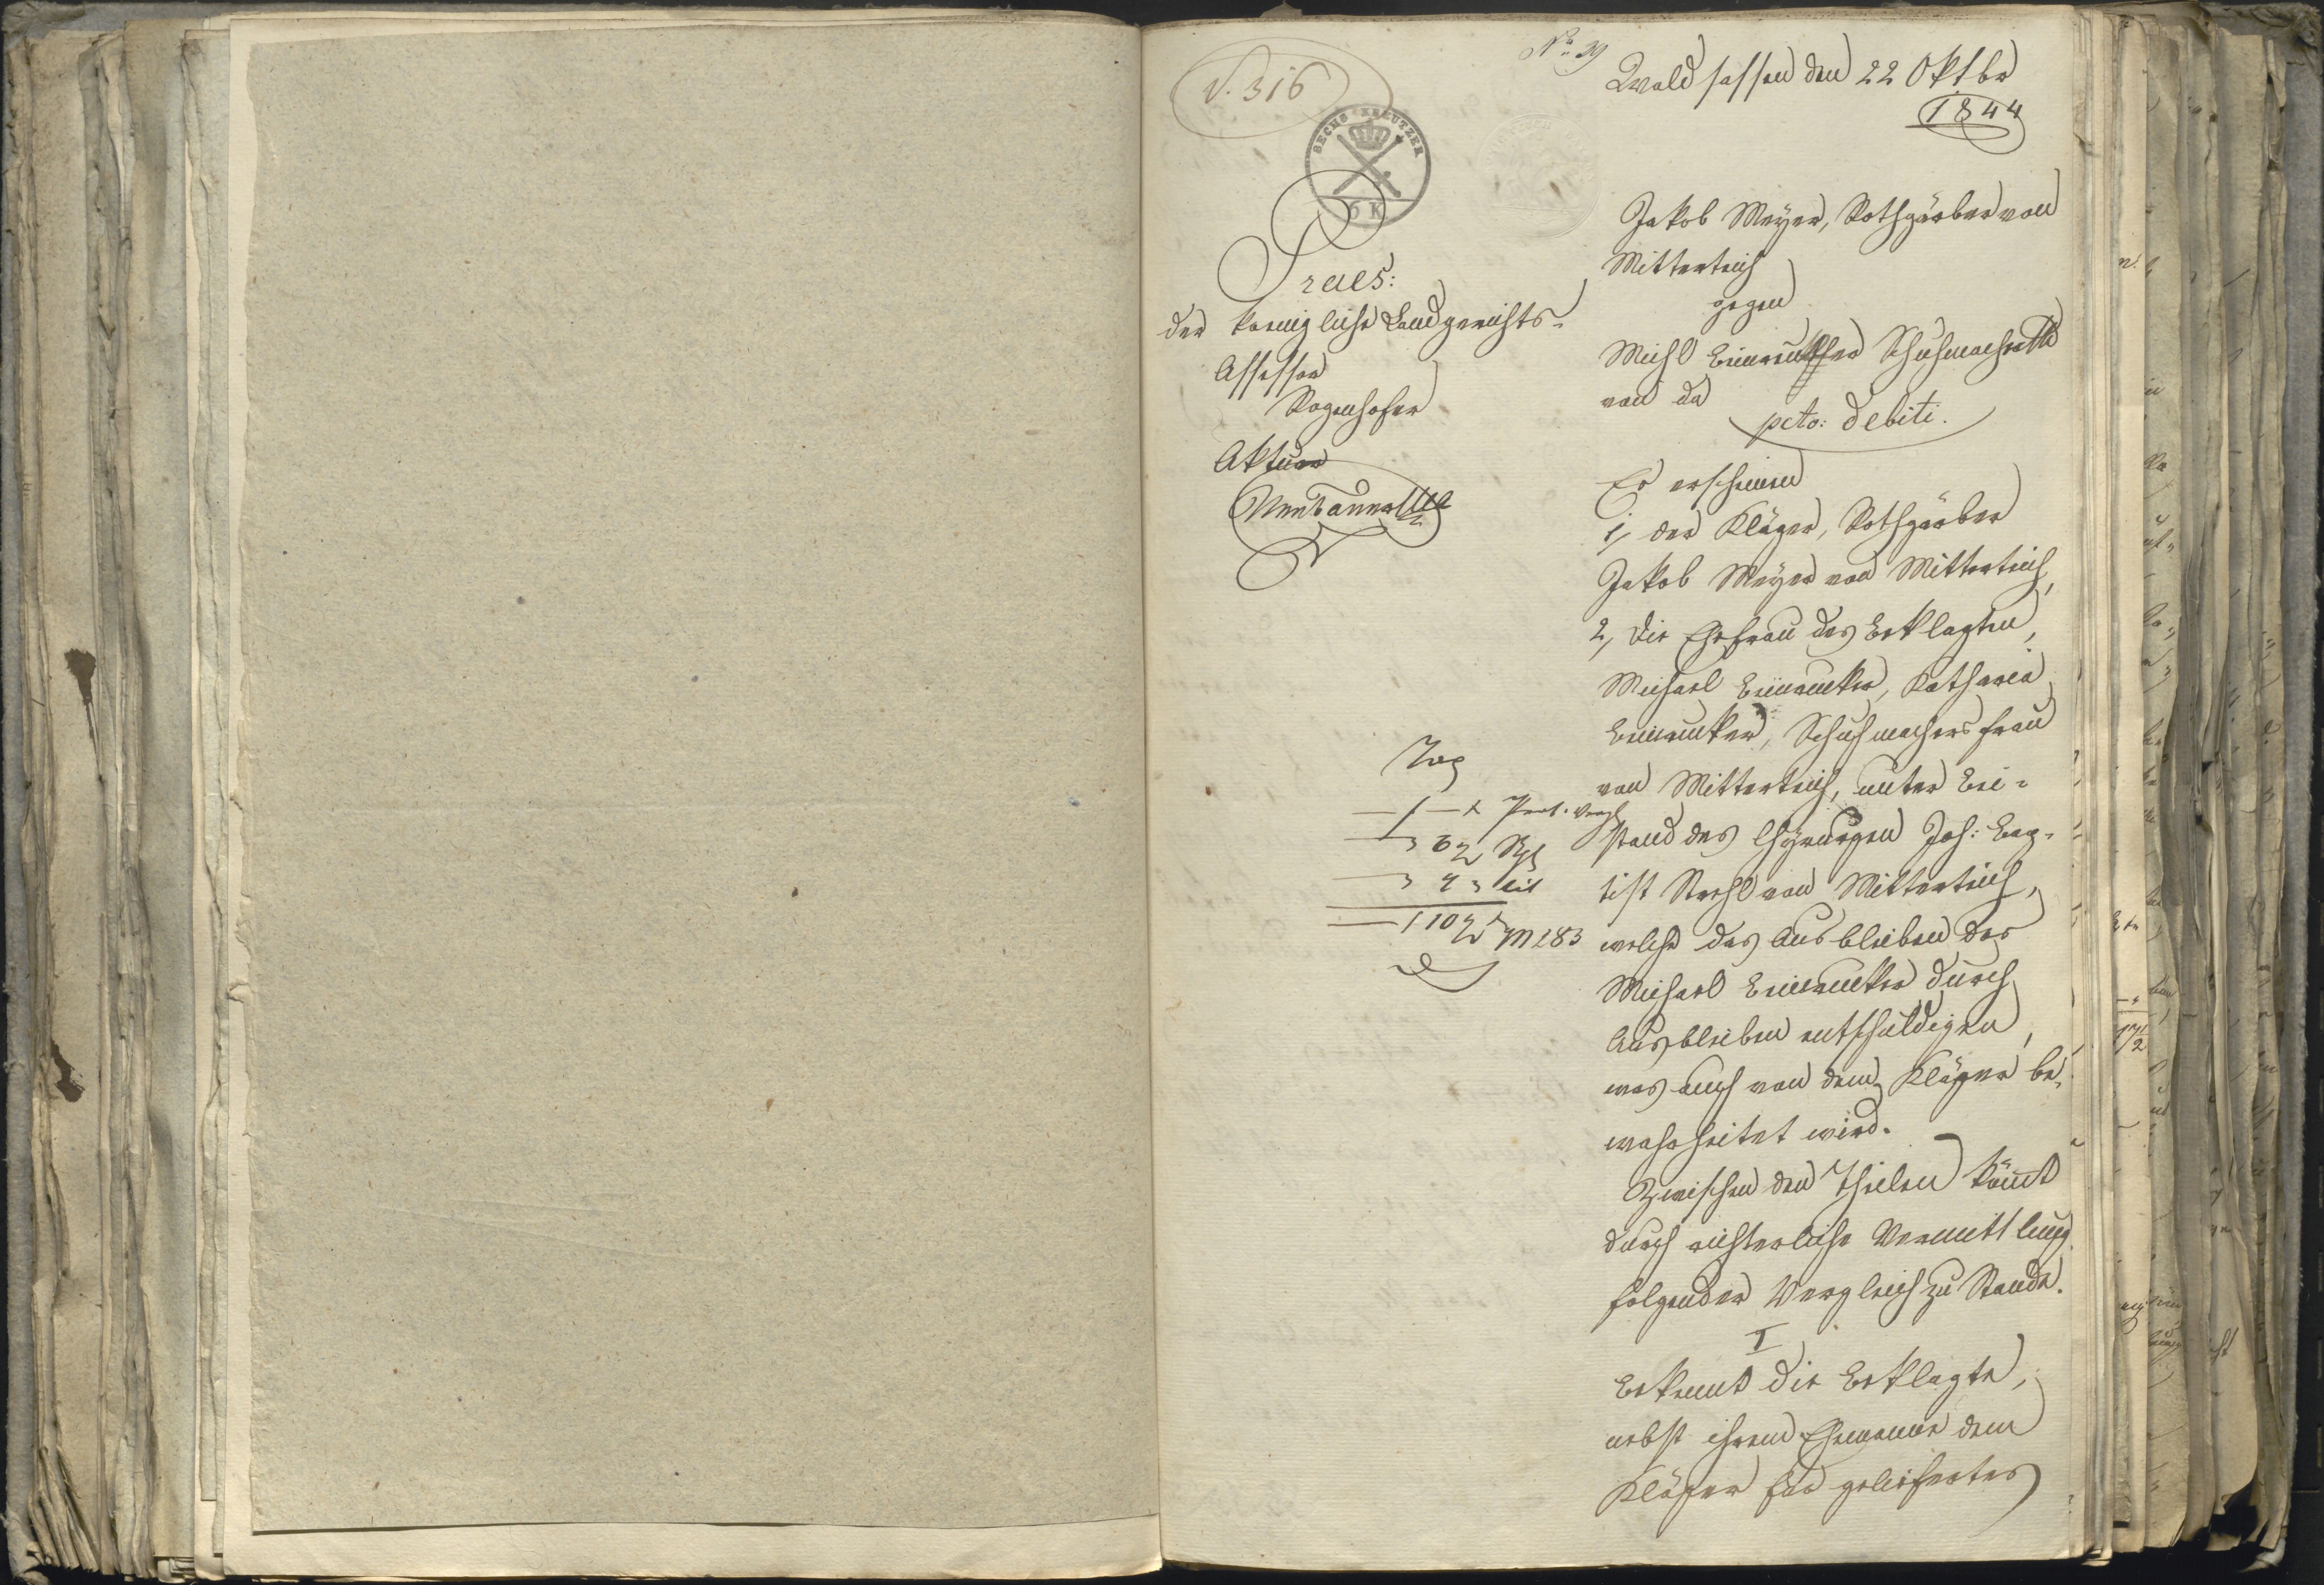 V. 316
No 29
Waldsassen den 22 Oktbr
1844
SECHS KREUTZER
6 K
Praes:
der koenigliche Landgerichts-
Assessor
Rogenhofer
Aktuar
Jakob Meyer, Rothgärber von
Mitterteich
gegen
Michl Schuhmacher
von da
pcto: debiti.
Es erscheinen
1, der Kläger, Rothgärber
Jakob Meyer von Mitterteich,
2, die Ehefrau des Beklagten,
Michael Katharia
Schuhmachersfrau
von Mitterteich, unter Bei-
stand des Chyrurgen Joh: Bap-
tist von Mitterteich,
welche das Ausbleiben des
Michael durch
Ausbleiben entschuldigen,
was auch von dem Kläger be-
wahrheitet wird.
Zwischen den Theilen kömt
durch richterliche Vermittlung
folgender Vergleich zu Stande.
I
Bekennt die Beklagte,
nebst ihrem Ehemanne dem
Kläger für geliefertes
Tax